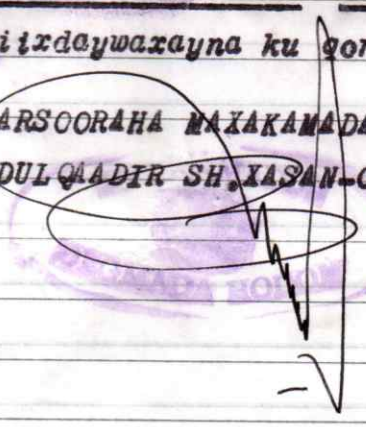 iixdaywaxayna ku qor
ARSOORAHA MAXAKAMADA
DULQAADIR SH.XASAN-